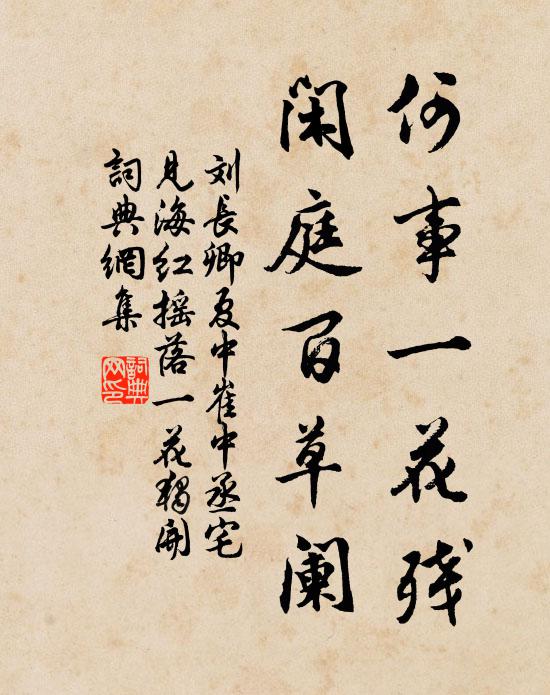 何事一花残
闲庭百草阑
刘長卿夏中崔中丞宅
见海红摇落一花獨開
詞典網集
詞典网印